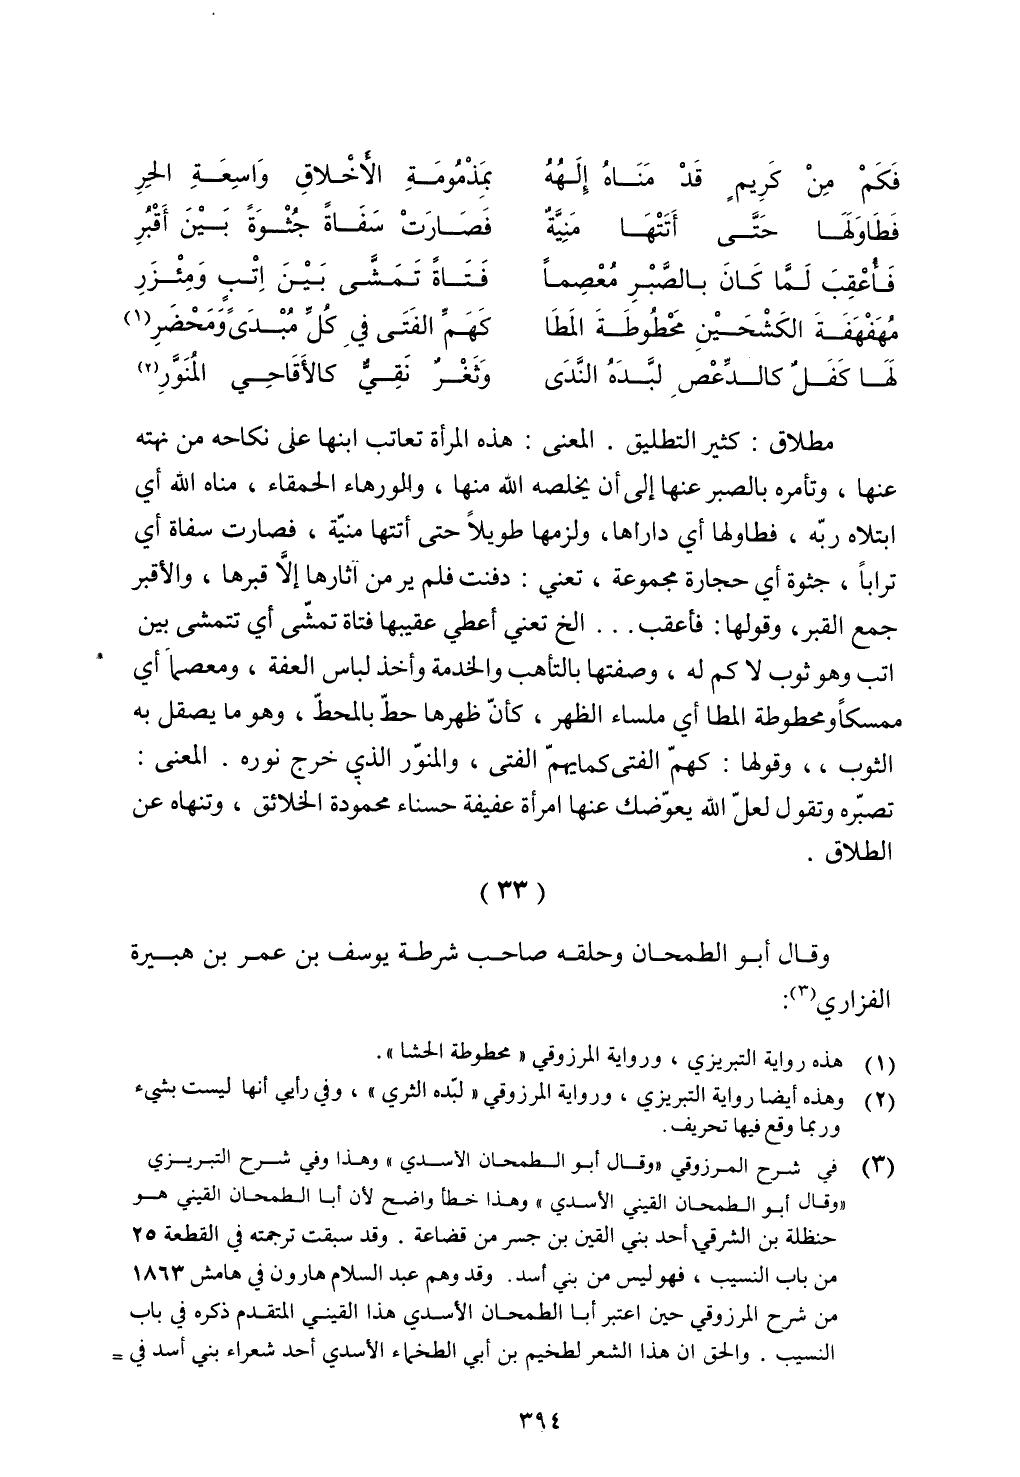 فَكَمْ مِنْ كَرِيمٍ قَدْ مَنَاهُ إِلَهُهُ بِمَذْمُومَةِ الأَخْلاقِ وَاسِعَةِ الحِرِ
فَطَاوَلَهَا حَتَّى أَتَتْهَا مَنِيَّةٌ فَصَارَتْ سَفَاةً جُثْوَةً بَيْنَ أَقْبُرِ
فَأُعْقِبَ لَمَّا كَانَ بالصَّبْرِ مُعْصِماً فَتَاةً تَمَشَّى بَيْنَ إِتْبٍ وَمِئْزَرِ
مُهَفْهَفَةَ الكَشْحَيْنِ مَحْطُوطَةَ المَطَا كَهَمِّ الفَتَى في كُلِّ مَبْدَىً وَمَحْضَرِ(١)
لَهَا كَفَلٌ كالدِّعْصِ لبَّدَهُ النَّدَى وَثَغْرٌ نَقِيٌّ كالأقَاحِي المُنَوَّرِ(٢)
مطلاق : كثير التطليق . المعنى : هذه المرأة تعاتب ابنها على نكاحه من نهته
عنها ، وتأمره بالصبر عنها إلى أن يخلصه الله منها ، والورهاء الحمقاء ، مناه الله أي
ابتلاه ربّه ، فطاولها أي داراها، ولزمها طويلاً حتى أتتها منيّة ، فصارت سفاة أي
تراباً ، جثوة أي حجارة مجموعة ، تعني : دفنت فلم ير من آثارها إلاَّ قبرها ، والأقبر
جمع القبر، وقولها: فأعقب... الخ تعني أعطي عقيبها فتاة تمشّى أي تتمشى بين
اتب وهو ثوب لا كم له ، وصفتها بالتأهب والخدمة وأخذ لباس العفة ، ومعصماً أي
ممسكاً ومحطوطة المطا أي ملساء الظهر ، كأنّ ظهرها حطّ بالمحطّ ، وهو ما يصقل به
الثوب ،، وقولها : كهمّ الفتى كما يهمّ الفتى ، والمنوّر الذي خرج نوره . المعنى :
تصبّره وتقول لعلّ الله يعوّضك عنها امرأة عفيفة حسناء محمودة الخلائق ، وتنهاه عن
الطلاق .
( ٣٣ )
وقال أبو الطمحان وحلقه صاحب شرطة يوسف بن عمر بن هبيرة
الفزاري(٣):
(١) هذه رواية التبريزي ، ورواية المرزوقي « محطوطة الحشا ».
(٢) وهذه أيضا رواية التبريزي ، ورواية المرزوقي « لبّده الثري » ، وفي رأيي أنها ليست بشيء
وربما وقع فيها تحريف.
(٣) في شرح المرزوقي «وقال أبو الطمحان الأسدي » وهذا وفي شرح التبريزي
«وقال أبو الطمحان القيني الأسدي » وهذا خطأ واضح لأن أبا الطمحان القيني هو
حنظلة بن الشرقي أحد بني القين بن جسر من قضاعة . وقد سبقت ترجمته في القطعة ٢٥
من باب النسيب ، فهو ليس من بني أسد. وقد وهم عبد السلام هارون في هامش ١٨٦٣
من شرح المرزوقي حين اعتبر أبا الطمحان الأسدي هذا القيني المتقدم ذكره في باب
النسيب . والحق ان هذا الشعر لطخيم بن أبي الطخماء الأسدي أحد شعراء بني أسد في =
٣٩٤